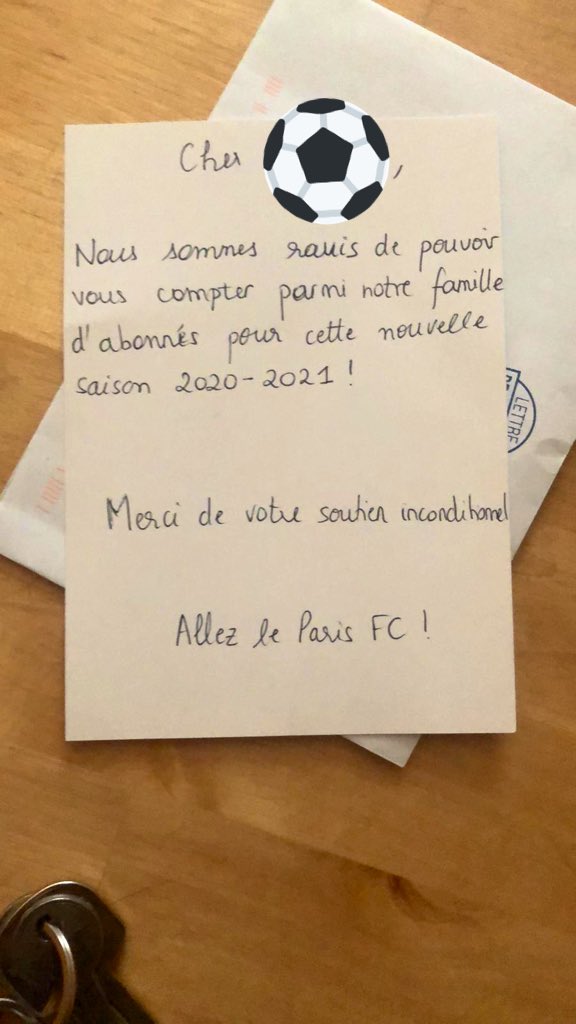 Cher ,
Nous sommes ravis de pouvoir
vous compter parmi notre famille
d'abonnés pour cette nouvelle
saison 2020-2021 !
Merci de votre soutien inconditionnel
Allez le Paris FC !
LETTRE